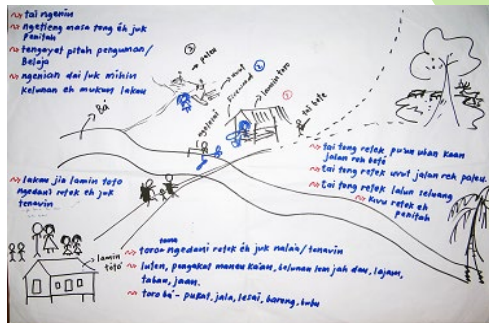 tai ngenin
ngetieng masa teng éh juk
penitah
tengayet pitah penguman/
Belaja
ngenian dai luk mihin
kelunan eh mukum lakau
③
paleu
uvut
②
lamin toro
①
ngelesai
tai bete
Bá
tai tong retek puun uban kaan
jalan reh beté
tai tong retek uvut jalan reh paleu.
tai tong retek lalun seluang
kuu retek eh
penitah
lakau jia lamin toto
ngedani retek eh juk
tenavin
lamin
toto
toro ngedani retek éh juk nalau/tenavin
luten, pengakat maneu kaian, belunan lem jah dau, lajam,
tabau, jaam.
toro bá - pukat, jala, lesai, bareng, bubu